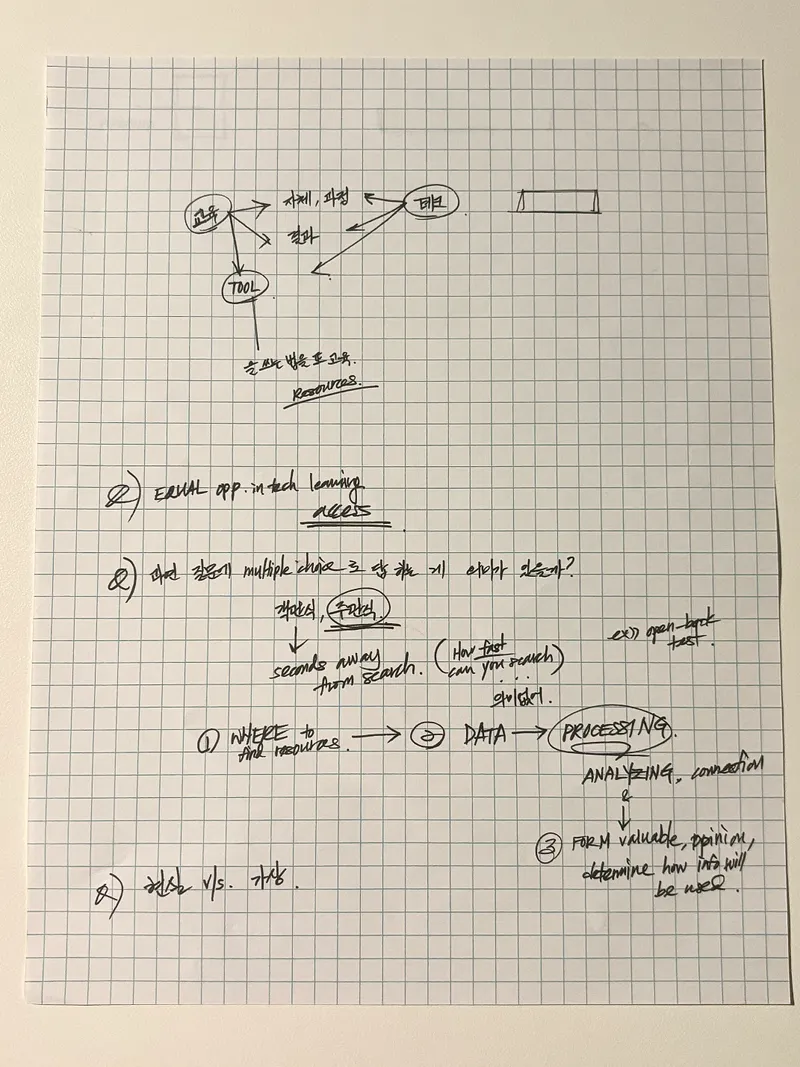 교육
자체, 과정
테크
결과
TOOL
글 쓰는 법을 또 교육.
Resources.
Q) EQUAL opp. in tech learning
access
Q) 과연 질문에 multiple choice로 답 하는 게 의미가 있을까?
객관식, 주관식.
ex)) open-book
test.
seconds away
from search.
(How fast
can you search)
...
의미없어.
① WHERE to
find resources.
② DATA → PROCESSING.
ANALYZING, connection
&
③ FORM valuable, opinion,
determine how info will
be used.
Q) 현실 v/s. 가상.